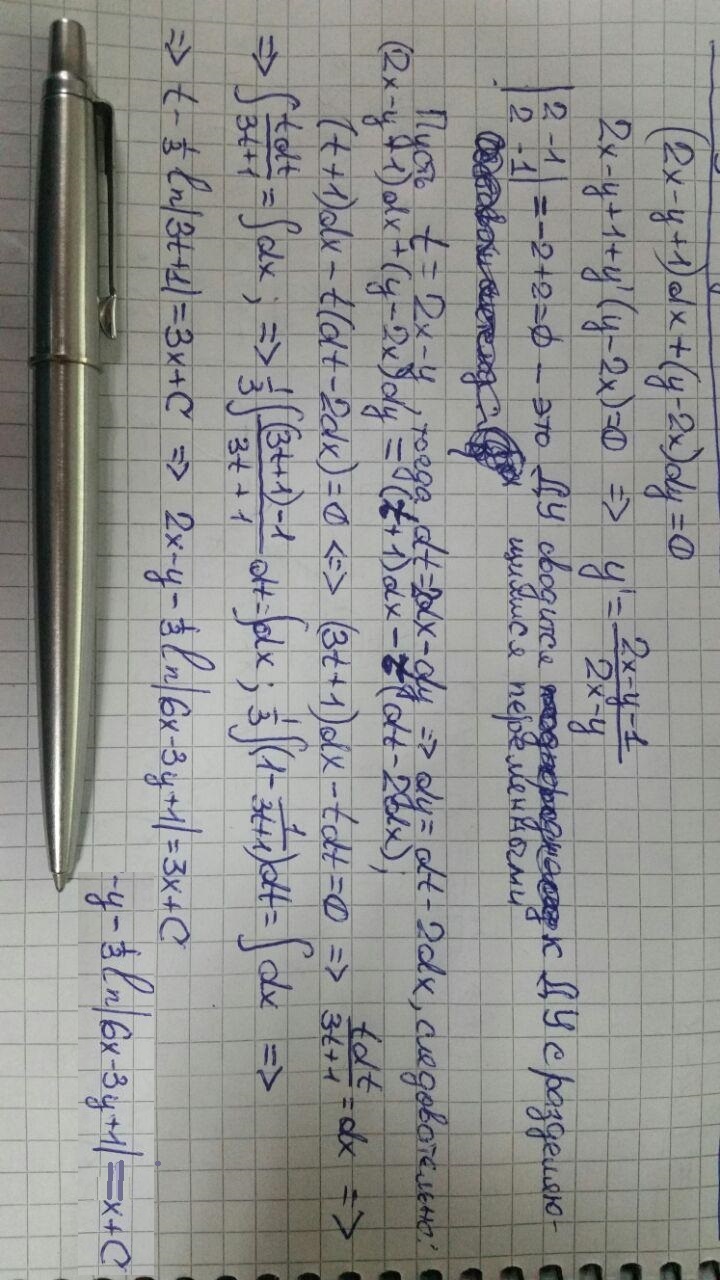 (2x-y+1)dx+(y-2x)dy=0
2x-y+1+y'(y-2x)=0 => y'=\frac{2x-y-1}{2x-y}
|2 -1; 2 -1|=-2+2=0 - это ДУ сводится к ДУ с разделяю-
щимися переменными
Пусть t=2x-y, тогда dt=2dx-dy => dy=dt-2dx, следовательно:
(2x-y+1)dx+(y-2x)dy=(t+1)dx-t(dt-2dx);
(t+1)dx-t(dt-2dx)=0 <=> (3t+1)dx-tdt=0 => \frac{tdt}{3t+1}=dx =>
=> ∫\frac{tdt}{3t+1}=∫dx; => \frac{1}{3}∫\frac{(3t+1)-1}{3t+1}dt=∫dx; \frac{1}{3}∫(1-\frac{1}{3t+1})dt=∫dx =>
=> t-\frac{1}{3}ln|3t+1|=3x+C => 2x-y-\frac{1}{3}ln|6x-3y+1|=3x+C
-y-\frac{1}{3}ln|6x-3y+1|=x+C